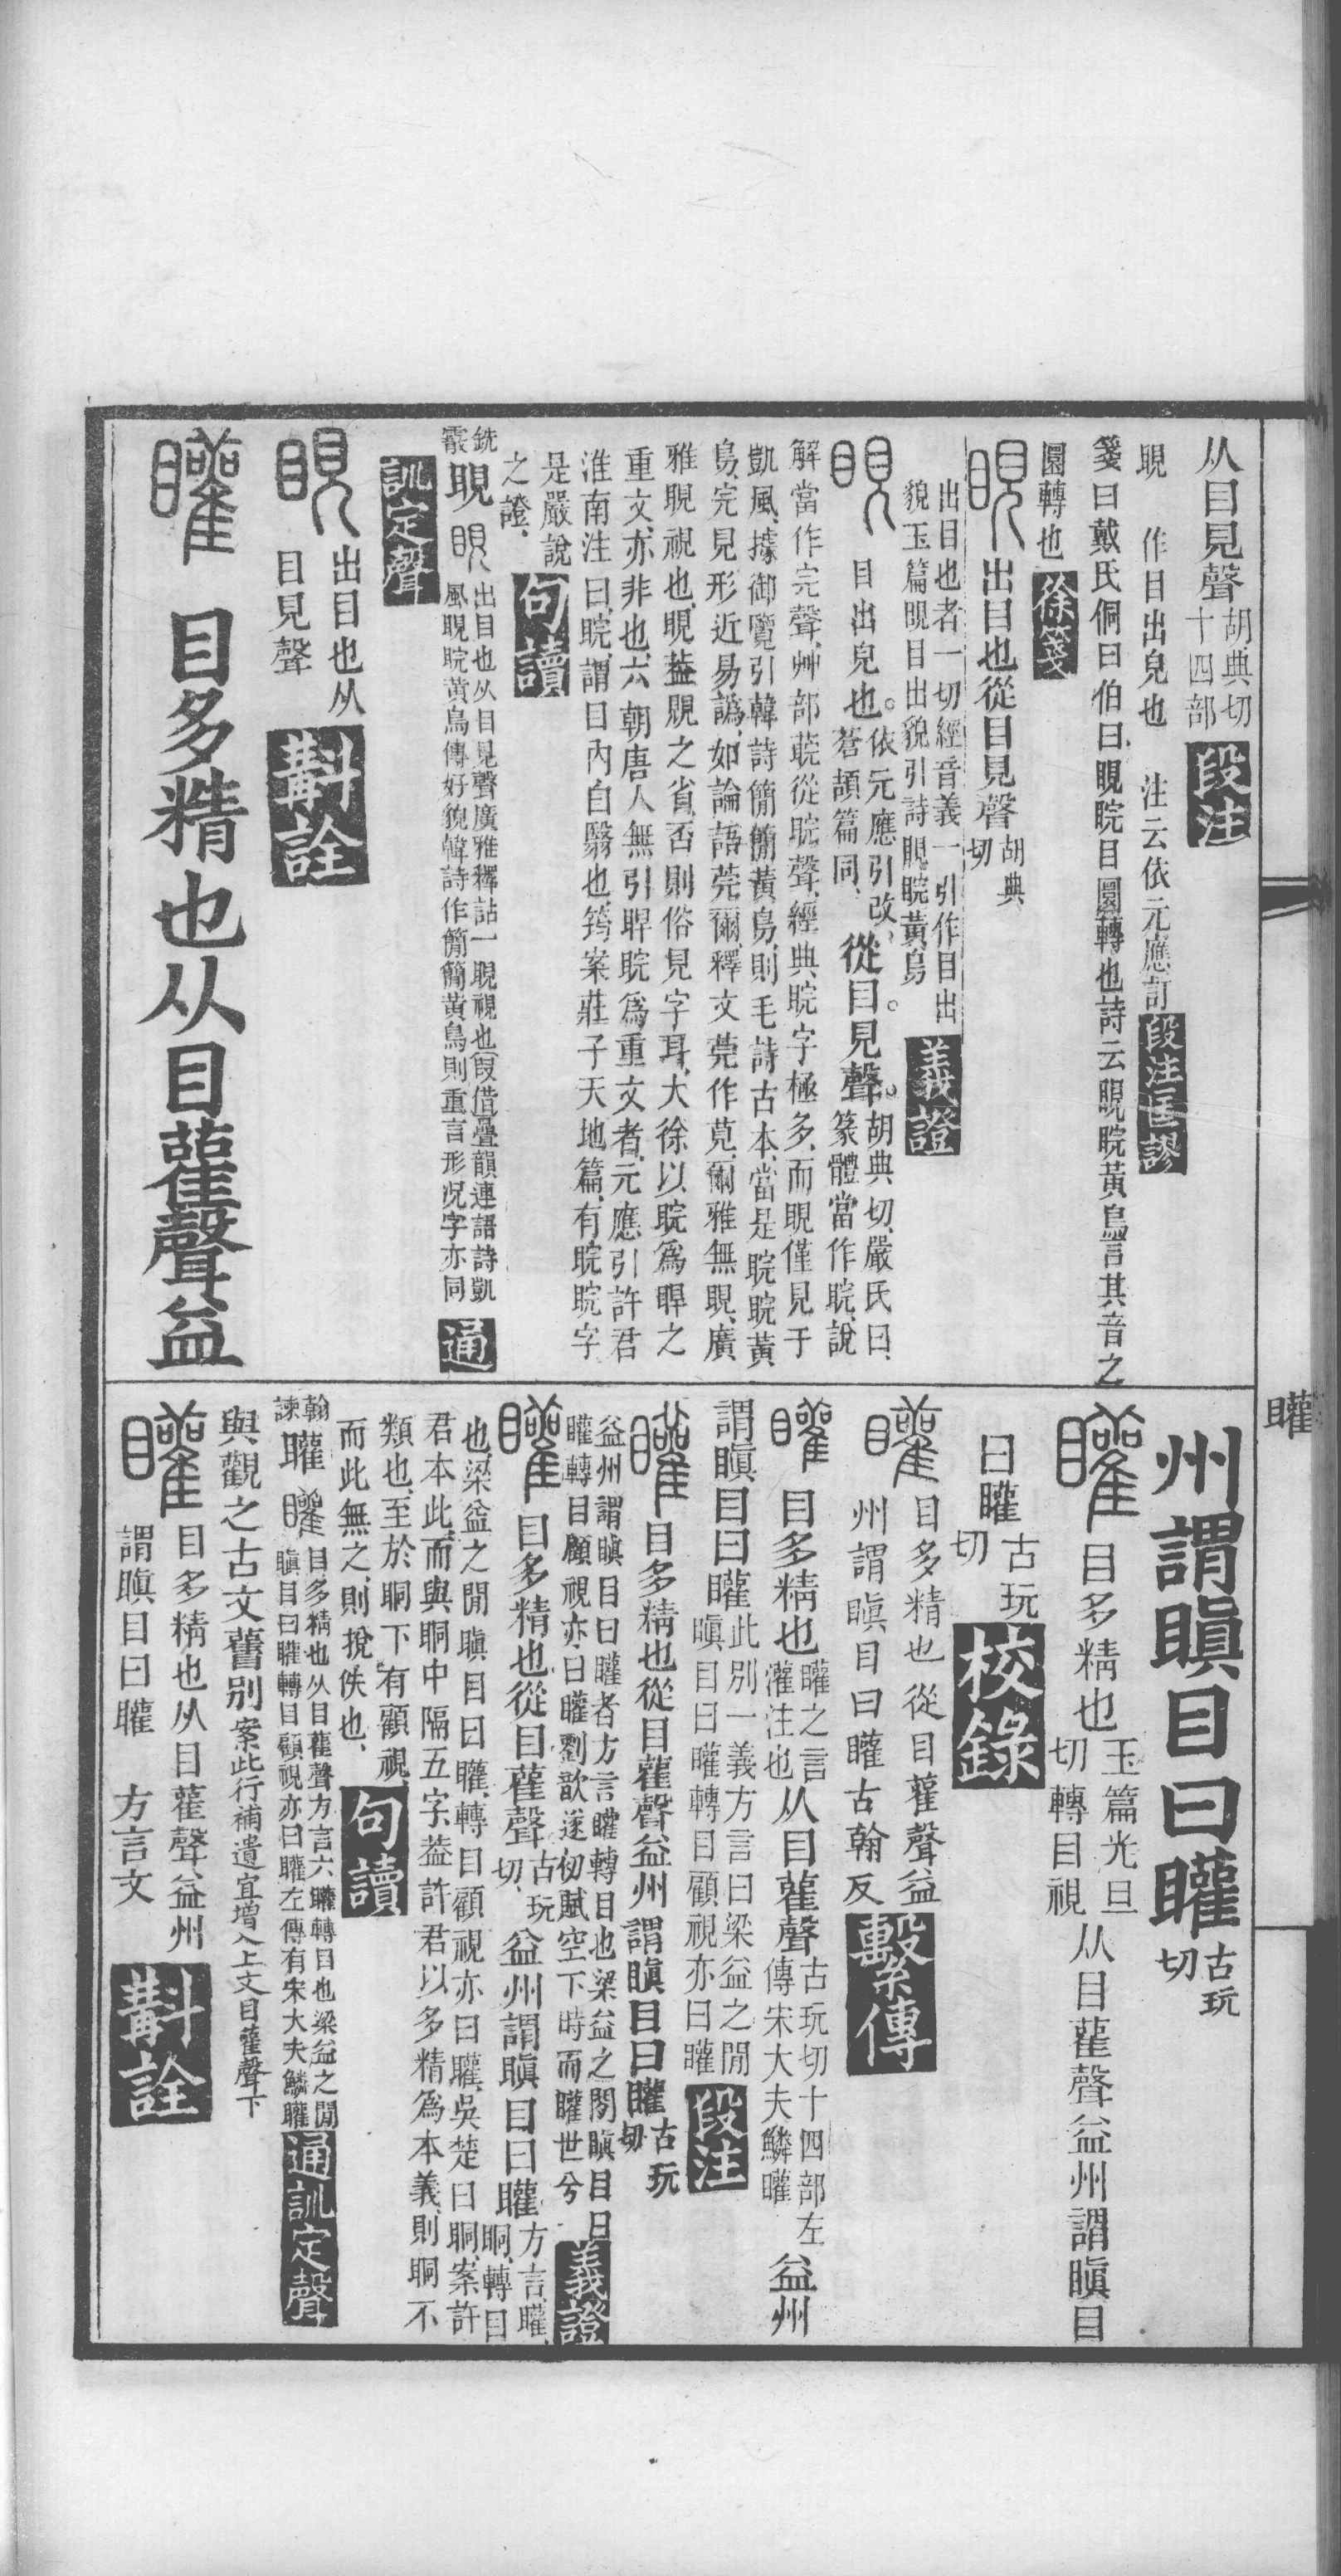 从目見聲胡典切
十四部段注
睍 作目出皃也 注云依元應訂段注匡謬
箋曰戴氏侗曰伯曰睍睆目圜轉也詩云睍睆黃鳥言其音之
圜轉也徐箋
睍出目也從目見聲胡典
切
出目也者一切經音義一引作目出
貌玉篇睍目出貌引詩睍睆黃鳥義證
睍目出皃也。依元應引改
蒼頡篇同、從目見聲。胡典切、嚴氏曰、
篆體當作睆、說
解當作完聲、艸部莧從睆聲、經典睆字極多、而睍僅見于
凱風、據御覽引韓詩簡簡黃鳥、則毛詩古本、當是睆睆黃
鳥、完見形近易譌、如論語莞爾、釋文莞作莧、爾雅無睍、廣
雅睍視也、睍葢覞之省、否則俗見字耳、大徐以睆爲睅之
重文、亦非也、六朝唐人無引睅睆爲重文者、元應引許君
淮南注曰、睆、謂目內白翳也、筠案莊子天地篇、有睆睆字
是嚴說
之證、句讀
銑
霰睍睍出目也从目見聲廣雅釋詁一睍視也叚借疊韻連語詩凱
風睍睆黃鳥傳好貌韓詩作簡簡黃鳥則重言形況字亦同通
訓定聲
睍出目也从
目見聲斠詮
矔目多精也从目雚聲益
州謂瞋目曰矔古玩
切
矔目多精也玉篇光旦
切轉目視从目雚聲益州謂瞋目
曰矔古玩
切校錄
矔目多精也從目雚聲益
州謂瞋目曰矔古翰反繫傳
矔目多精也矔之言
灌注也从目雚聲古玩切十四部左
傳宋大夫鱗矔益州
謂瞋目曰矔此別一義方言曰梁益之閒
瞋目曰矔轉目顧視亦曰矔段注
矔目多精也從目雚聲益州謂瞋目曰矔古玩
切
益州謂瞋目曰矔者方言矔轉目也梁益之閒瞋目曰
矔轉目顧視亦曰矔劉歆遂初賦空下時而矔世兮義證
矔目多精也從目雚聲古玩
切、益州謂瞋目曰矔方言、矔、
眮、轉目
也、梁益之閒瞋目曰矔、轉目顧視亦曰矔、吳楚曰眮、案許
君本此、而與眮中隔五字、葢許君以多精爲本義、則眮不
類也、至於眮下有顧視、
而此無之、則挩佚也、句讀
翰
諫矔矔目多精也从目雚聲方言六矔轉目也梁益之閒
瞋目曰矔轉目顧視亦曰矔左傳有宋大夫鱗矔通訓定聲
與觀之古文𥍮別案此行補遺宜增入上文目雚聲下
矔目多精也从目雚聲益州
謂瞋目曰矔 方言文斠詮
矔